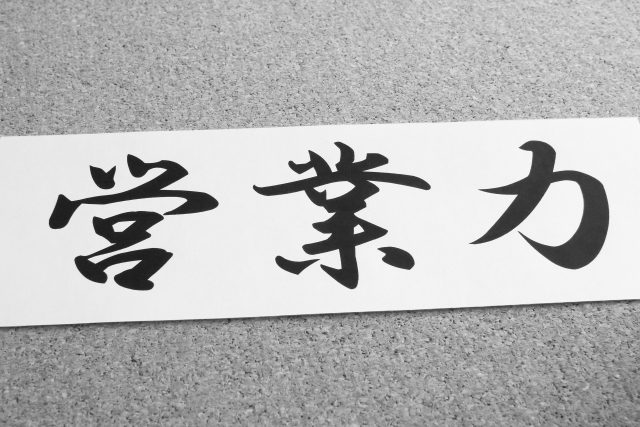 営業力